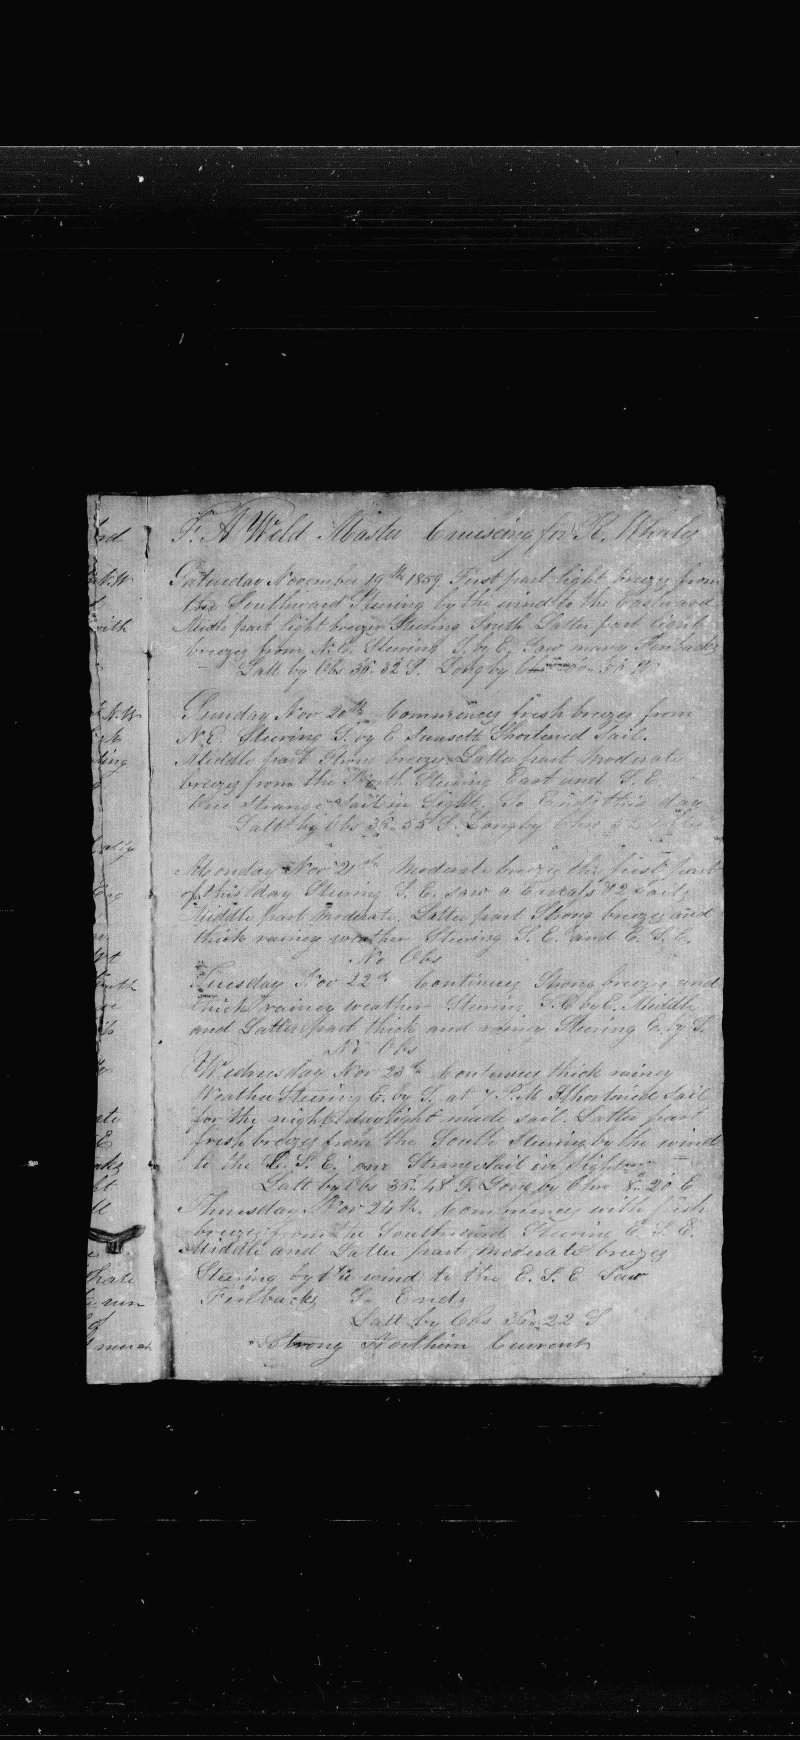 F. A Weld Master Cruiseing for R. Whales
Saturday November 19th 1859 First part light breezes from
the Southward Steering by the wind to the Eastward
Midle part light breezes Steering South Latter part light
breezes from N.E. Steering S. by E. Saw many Finbacks
Latt by Obs 36.32 S. Long by
Sunday Nov 20th Commences fresh breezes from
N.E. Steering S. by E Sunsett Shortened Sail.
Middle part Strong breezes Latter part moderate
breezes from the North Steering East and S. E.
One strange Sail in Sight. So Ends this day
Latt by Obs 35.55 S. Long by Chr
Monday Nov 21th Moderate breezes the first part
of this day Steering S. E. saw a 2 Sails
Middle part Moderate. Latter part Strong breezes and
thick rainey weather Steering S. E. and E. S. E.
No Obs
Tuesday Nov 22d Continues Strong breezes and
thick rainey weather Steering S. E by E. Middle
and Latter part thick and rainey Steering E. by S.
No Obs
Wednesday Nov 23th Continues thick rainey
Weather Steering E. by S. at 7 P.M Shortened Sail
for the night. daylight made sail. Latter part
fresh breezes from the South Steering by the wind
to the E. S. E. one Strange Sail in Sight
Latt by Obs 35.48 S. Long by Chr 8.20 E
Thursday Nov 24th. Commences with fresh
breezes from the Southward Steering E. S. E.
Middle and Latter part moderate breezes
Steering by the wind to the E. S. E Saw
Finbacks So Ends
Latt by Obs 36.22 S
Strong Northern Current